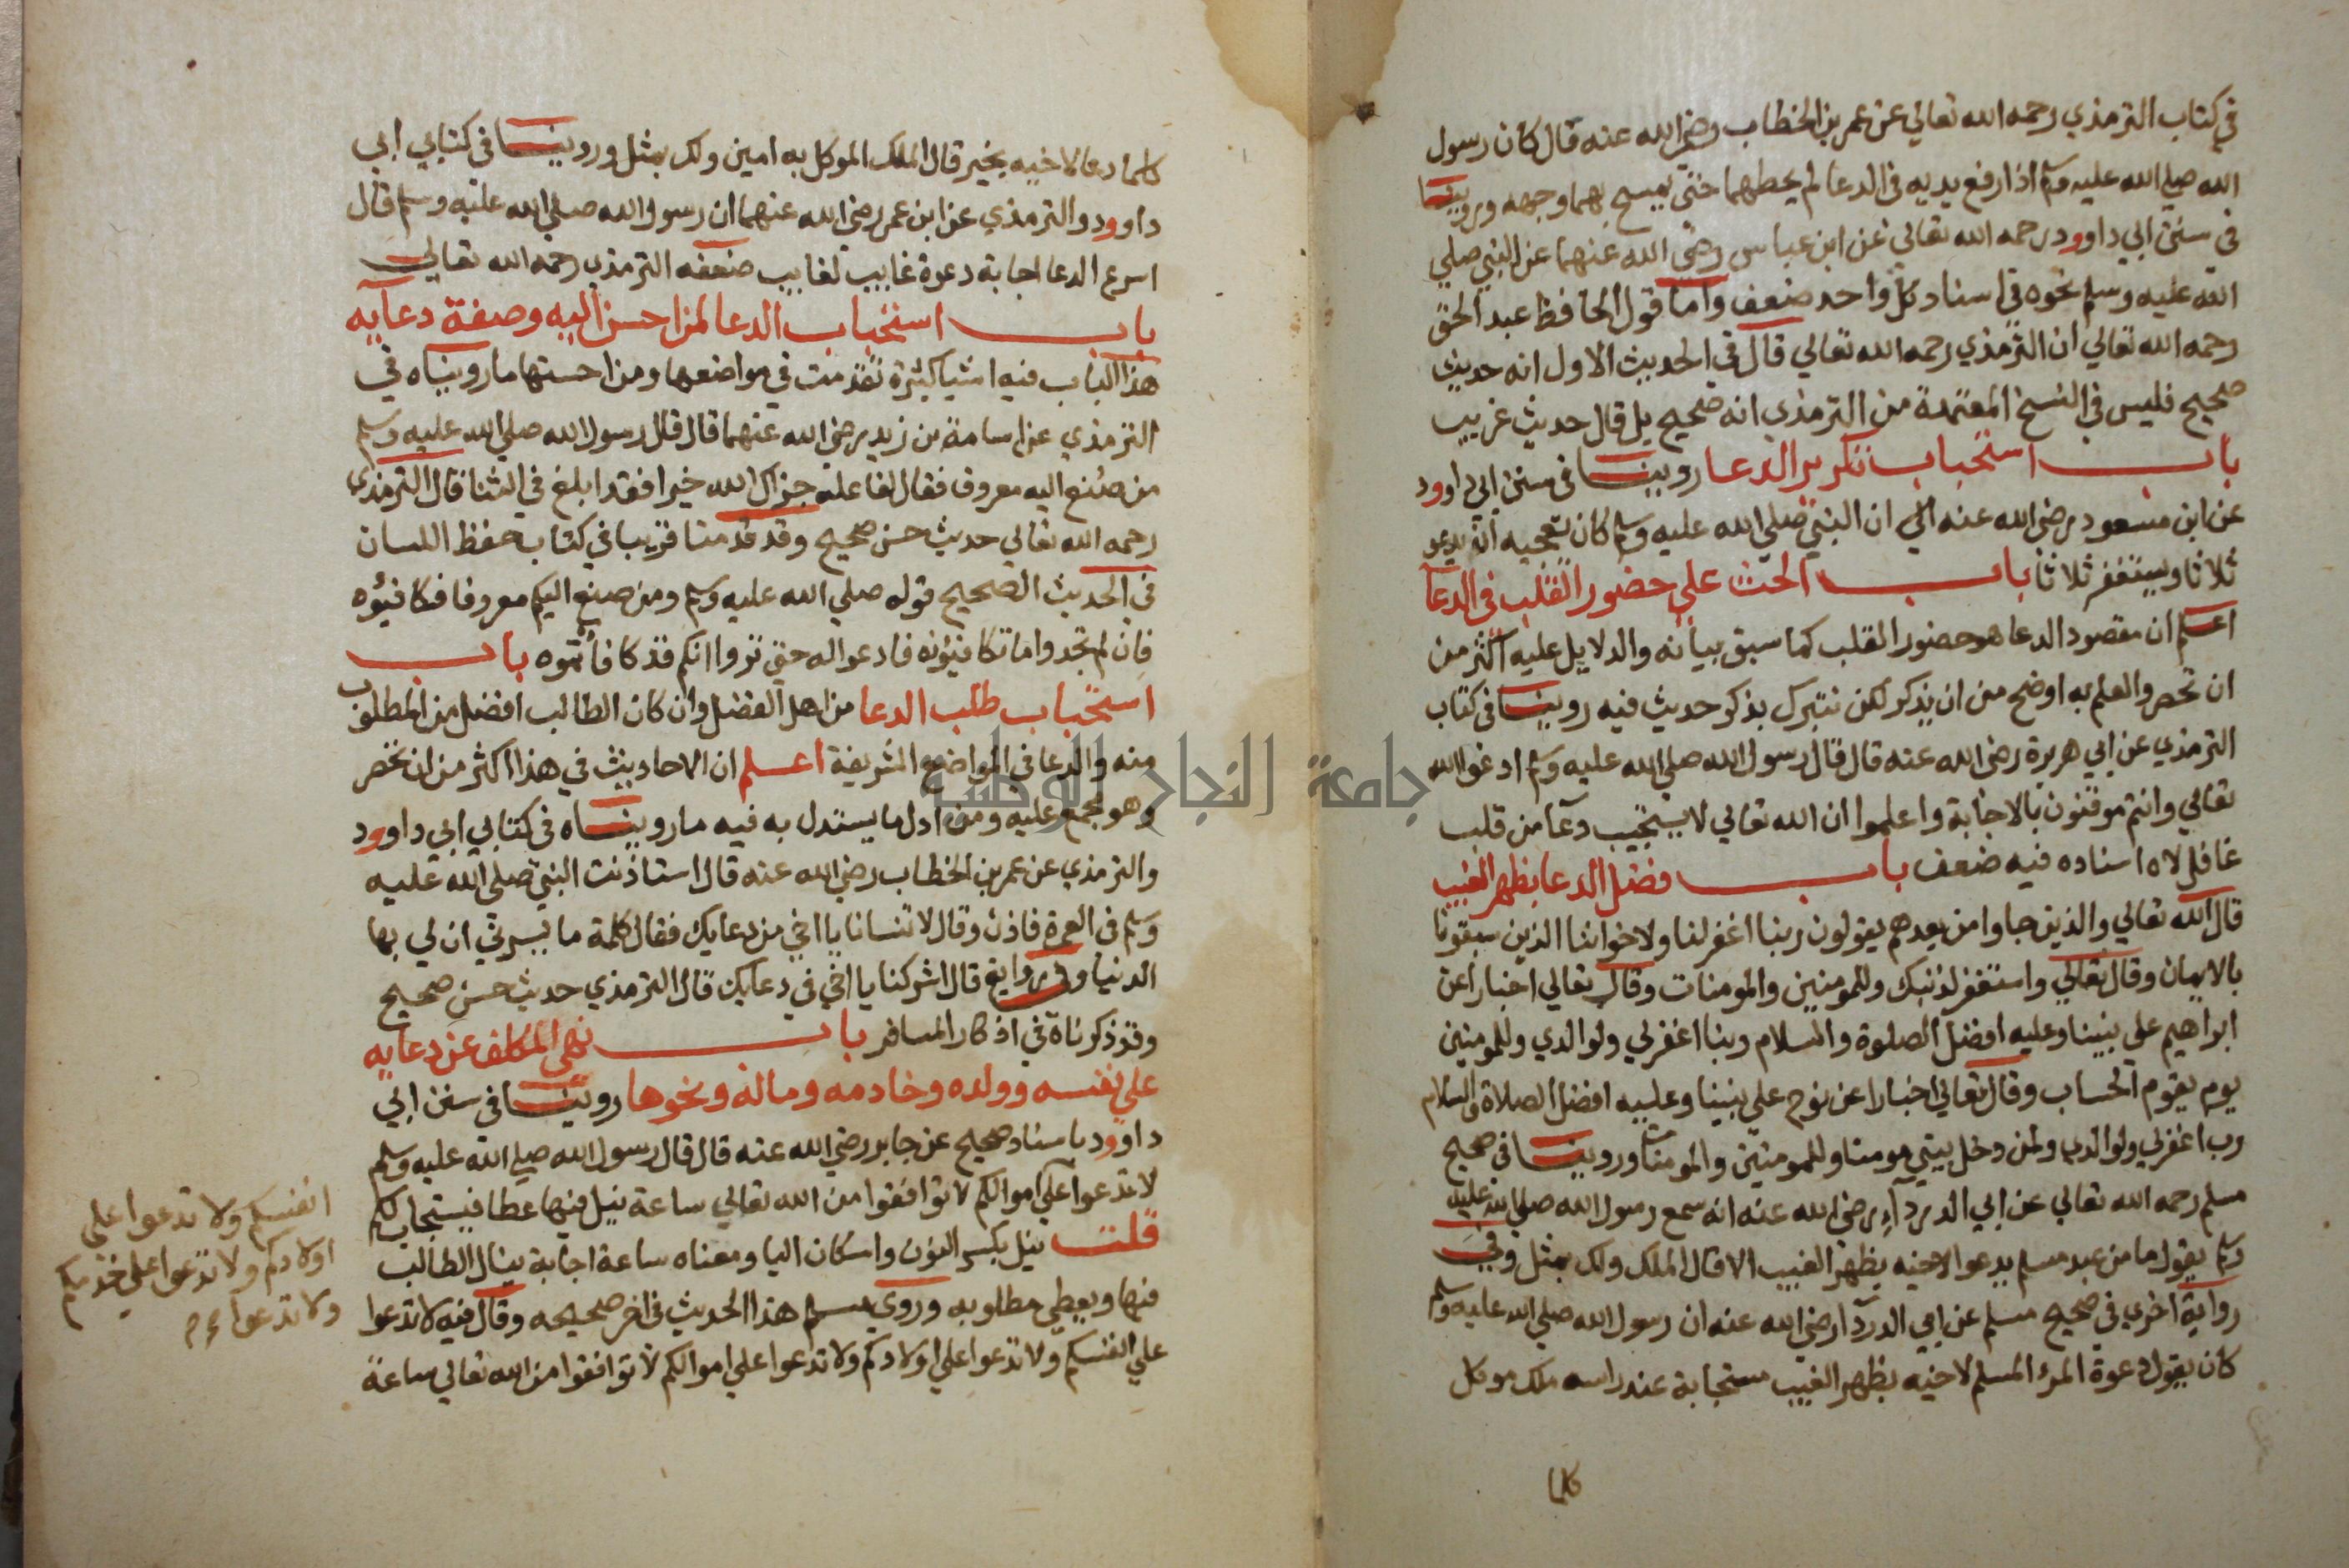 في كتاب الترمذي رحمه الله تعالي عن عمر بن الخطاب رضي الله عنه قال كان رسول
الله صلي الله عليه وسلم اذا رفع يديه في الدعا لم يحطهما حتي يمسح بهما وجهه وروينا
في سنن ابي داوود رحمه الله تعالي عن ابن عباس رضي الله عنهما عن النبي صلي
الله عليه وسلم نحوه في اسناد كل واحد ضعف واما قول الحافظ عبد الحق
رحمه الله تعالي ان الترمذي رحمه الله تعالي قال في الحديث الاول انه حديث
صحيح فليس في النسخ المعتمدة من الترمذي انه صحيح بل قال حديث غريب
باب استحباب تكرير الدعا روينا في سنن ابي داوود
عن ابن مسعود رضي الله عنه ان النبي صلي الله عليه وسلم كان يعجبه ان يدعو
ثلاثا ويستغفر ثلاثا باب الحث علي حضور القلب في الدعآ
اعلم ان مقصود الدعا هو حضور القلب كما سبق بيانه والدلايل عليه اكثر من
ان تحصر والعلم به اوضح من ان يذكر لكن نتبرك بذكر حديث فيه روينا في كتاب
الترمذي عن ابي هريرة رضي الله عنه قال قال رسول الله صلي الله عليه وسلم ادعوا الله
تعالي وانتم موقنون بالاجابة واعلموا ان الله تعالي لا يستجيب دعآ من قلب
غافل لاه اسناده فيه ضعف باب فضل الدعا بظهر الغيب
قال الله تعالي والذين جاوا من بعدهم يقولون ربنا اغفر لنا ولاخواننا الذين سبقونا
بالايمان وقال تعالي واستغفر لذنبك وللمومنين والمومنات وقال تعالي اخبارا عن
ابراهيم علي نبينا وعليه افضل الصلوة والسلام ربنا اغفر لي ولوالدي وللمومنين
يوم يقوم الحساب وقال تعالي اخبارا عن نوح علي نبينا وعليه افضل الصلاة والسلام
رب اغفر لي ولوالدي ولمن دخل بيتي مومنا وللمومنين والمومنات وروينا في صحيح
مسلم رحمه الله تعالي عن ابي الدردآء رضي الله عنه انه سمع رسول الله صلي الله عليه
وسلم يقول ما من عبد مسلم يدعو لاخيه بظهر الغيب الا قال الملك ولك بمثل وفي
رواية اخري في صحيح مسلم عن ابي الدردآ رضي الله عنه ان رسول الله صلي الله عليه وسلم
كان يقول دعوة المرء المسلم لاخيه بظهر الغيب مستجابة عند راسه ملك موكل
كلما
كلما دعا لاخيه بخير قال الملك الموكل به امين ولك بمثل وروينا في كتابي ابي
داوود والترمذي عن ابن عمر رضي الله عنهما ان رسول الله صلي الله عليه وسلم قال
اسرع الدعا اجابة دعوة غايب لغايب ضعفه الترمذي رحمه الله تعالي
باب استحباب الدعا لمن احسن اليه وصفة دعآيه
هذا الباب فيه اشيا كثيرة تقدمت في مواضعها ومن احسنها ما رويناه في
الترمذي عن اسامة بن زيد رضي الله عنهما قال قال رسول الله صلي الله عليه وسلم
من صنع اليه معروف فقال لفاعله جزاك الله خيرا فقد ابلغ في الثنا قال الترمذي
رحمه الله تعالي حديث حسن صحيح وقد قدمنا قريبا في كتاب حفظ اللسان
في الحديث الصحيح قوله صلي الله عليه وسلم ومن صنع اليكم معروفا فكافيؤه
فان لم تجدوا ما تكافيؤنه فادعوا له حتي تروا انكم قد كافأتموه باب
استحباب طلب الدعا من اهل الفضل وان كان الطالب افضل من المطلوب
منه والدعا في المواضع الشريفة اعلم ان الاحاديث في هذا اكثر من ان تحصر
وهو مجمع عليه ومن ادل ما يستدل به فيه ما رويناه في كتابي ابي داوود
والترمذي عن عمر بن الخطاب رضي الله عنه قال استاذنت النبي صلي الله عليه
وسلم في العمرة فاذن وقال لا تنسانا يا اخي من دعايك فقال كلمة ما يسرني ان لي بها
الدنيا وفي رواية قال اشركنا يا اخي في دعايك قال الترمذي حديث حسن صحيح
وقد ذكرناه في اذكار المسافر باب نهي المكلف عن دعايه
علي نفسه وولده وخادمه وماله ونحوها روينا في سنن ابي
داوود باسناد صحيح عن جابر رضي الله عنه قال قال رسول الله صلي الله عليه وسلم
لا تدعوا علي اموالكم لا توافقوا من الله تعالي ساعة نيل فيها عطا فيستجاب لكم
قلت نيل بكسر النون واسكان اليا ومعناه ساعة اجابة ينال الطالب
فيها ويعطي مطلوبه وروي مسلم هذا الحديث في اخر صحيحه وقال فيه لا تدعوا
علي انفسكم ولا تدعوا علي اولادكم ولا تدعوا علي اموالكم لا توافقوا من الله تعالي ساعة
انفسكم ولا تدعوا علي
اولادكم ولا تدعوا علي خدمكم
ولا تدعوا
جامعة النجاح الوطنية